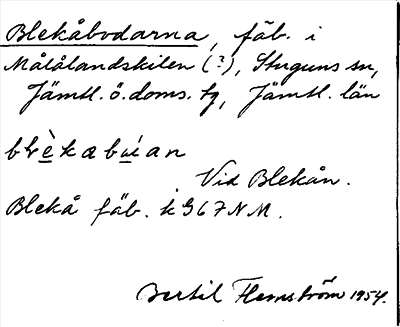 Blekåbodarna, fäb. i
Målålandskilen (?), Stuguns sn,
Jämtl. ö. doms. tg, Jämtl. län
blèkabuían
Vid Blekån.
Blekå fäb. k G67NM.
Bertil Flemström 1954.